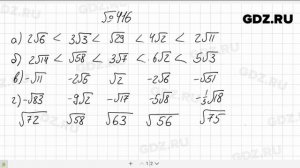 GDZ.RU
№416
а) 2√6 < 3√3 < √29 < 4√2 < 2√11
б) 2√14 < √58 < 3√7 < 6√2 < 5√3
в) -√11 -2√6 √2 -2√6 -√51
г) -√83 -9√2 -√17 -5√8 -⅓√18
√72 √58 √63 √56 √75
GDZ.RU
1/2